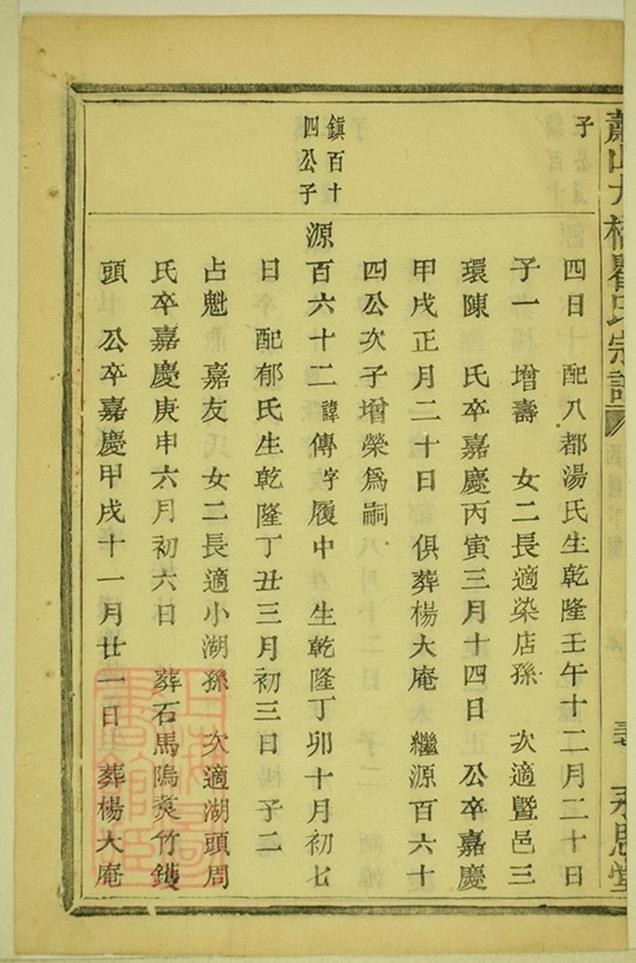 子
四日 配八都湯氏生乾隆壬午十二月二十日
子一 增壽 女二長適染店孫 次適暨邑三
環陳 氏卒嘉慶丙寅三月十四日 公卒嘉慶
甲戌正月二十日 俱葬楊大庵 繼源百六十
四公次子增榮爲嗣
鎮百十
四公子
源百六十二諱傳字履中 生乾隆丁卯十月初七
日 配郁氏生乾隆丁丑三月初三日 子二
占魁 嘉友 女二長適小湖孫 次適湖頭周
氏卒嘉慶庚申六月初六日 葬石馬隖莢竹鑊
頭 公卒嘉慶甲戌十一月廿一日 葬楊大庵
蕭山大橋瞿氏宗譜
永思堂